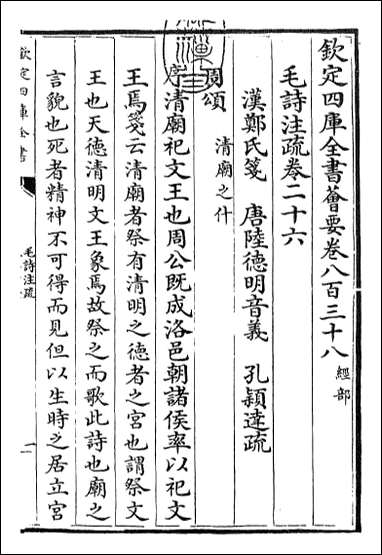 欽定四庫全書薈要卷八百三十八 經部
毛詩注疏卷二十六
漢鄭氏箋 唐陸德明音義 孔穎達疏
周頌 清廟之什
序清廟祀文王也周公既成洛邑朝諸侯率以祀文
王焉箋云清廟者祭有清明之德者之宮也謂祭文
王也天德清明文王象焉故祭之而歌此詩也廟之
言貌也死者精神不可得而見但以生時之居立宮
欽定四庫全書
毛詩注疏
一